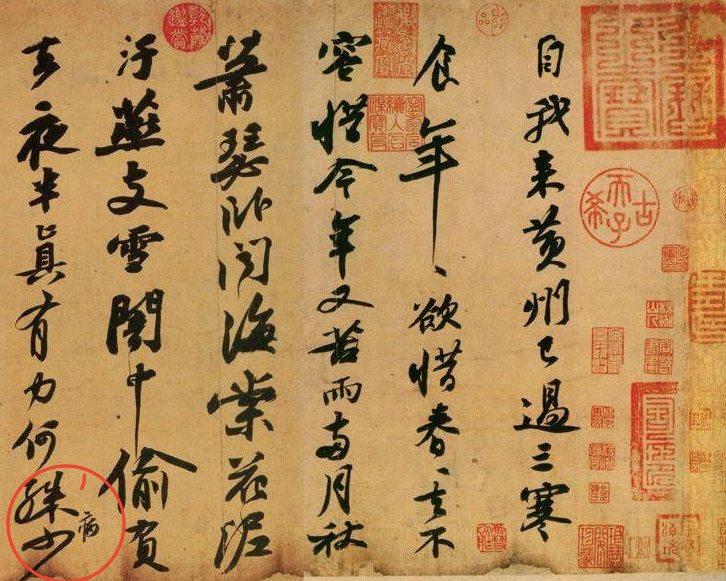 自我來黃州已過三寒
食年、欲惜春、去不
容惜今年又苦雨兩月秋
蕭瑟卧聞海棠花泥
汙燕支雪闇中偷負
去夜半眞有力何殊少
病
古希天子
乾隆鑑賞